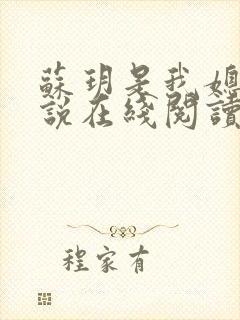 蘇玥是我媳
說在綫閱讀
程家有